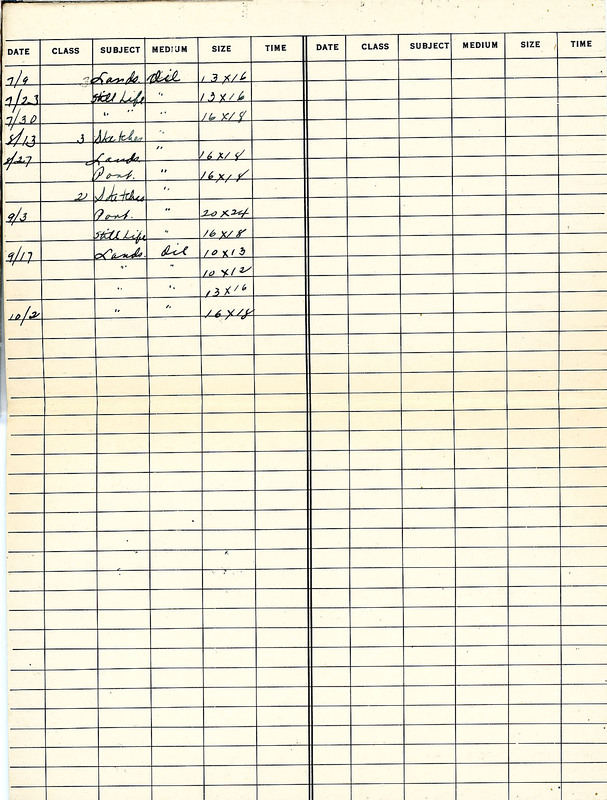 DATE CLASS SUBJECT MEDIUM SIZE TIME DATE CLASS SUBJECT MEDIUM SIZE TIME
7/9 Lands. Oil 13 x 16
7/23 Still Life " 13 x 16
7/30 " " " 16 x 18
8/13 3 Sketches "
8/27 Lands. " 16 x 18
Port. 16 x 18
2 Sketches "
9/3 Port. " 20 x 24
Still Life " 16 x 18
9/17 Lands. Oil 10 x 13
" " 10 x 12
" " 13 x 16
10/2 " " 16 x 18